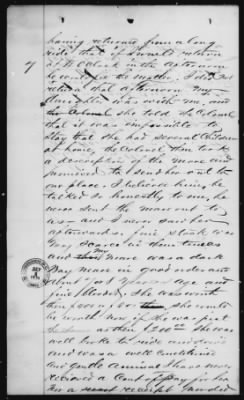 7
having returned from a long
ride that if I would return
at 4 O'Clock in the afternoon
he would fix the matter. I did not
return that afternoon my
daughter was with me, and
she told the Colonel
that it was impossible to
stay that she had several Children
at home, the Colonel then took
a description of the mare and
promised to send her out to
our place. I believed him, he
talked so honestly to me, he
never sent the mare out to
us and I never saw her
afterwards. Fine stock was
very scarce in them times
and mare was a dark
Bay mare in good order and
about years of age and
fine blooded. She was worth
then
be worth now if she was
as then $200.00 She was
well broke to ride and drive
and was a well conditioned
and gentle animal I have never
received a Cent of pay for her
receipt